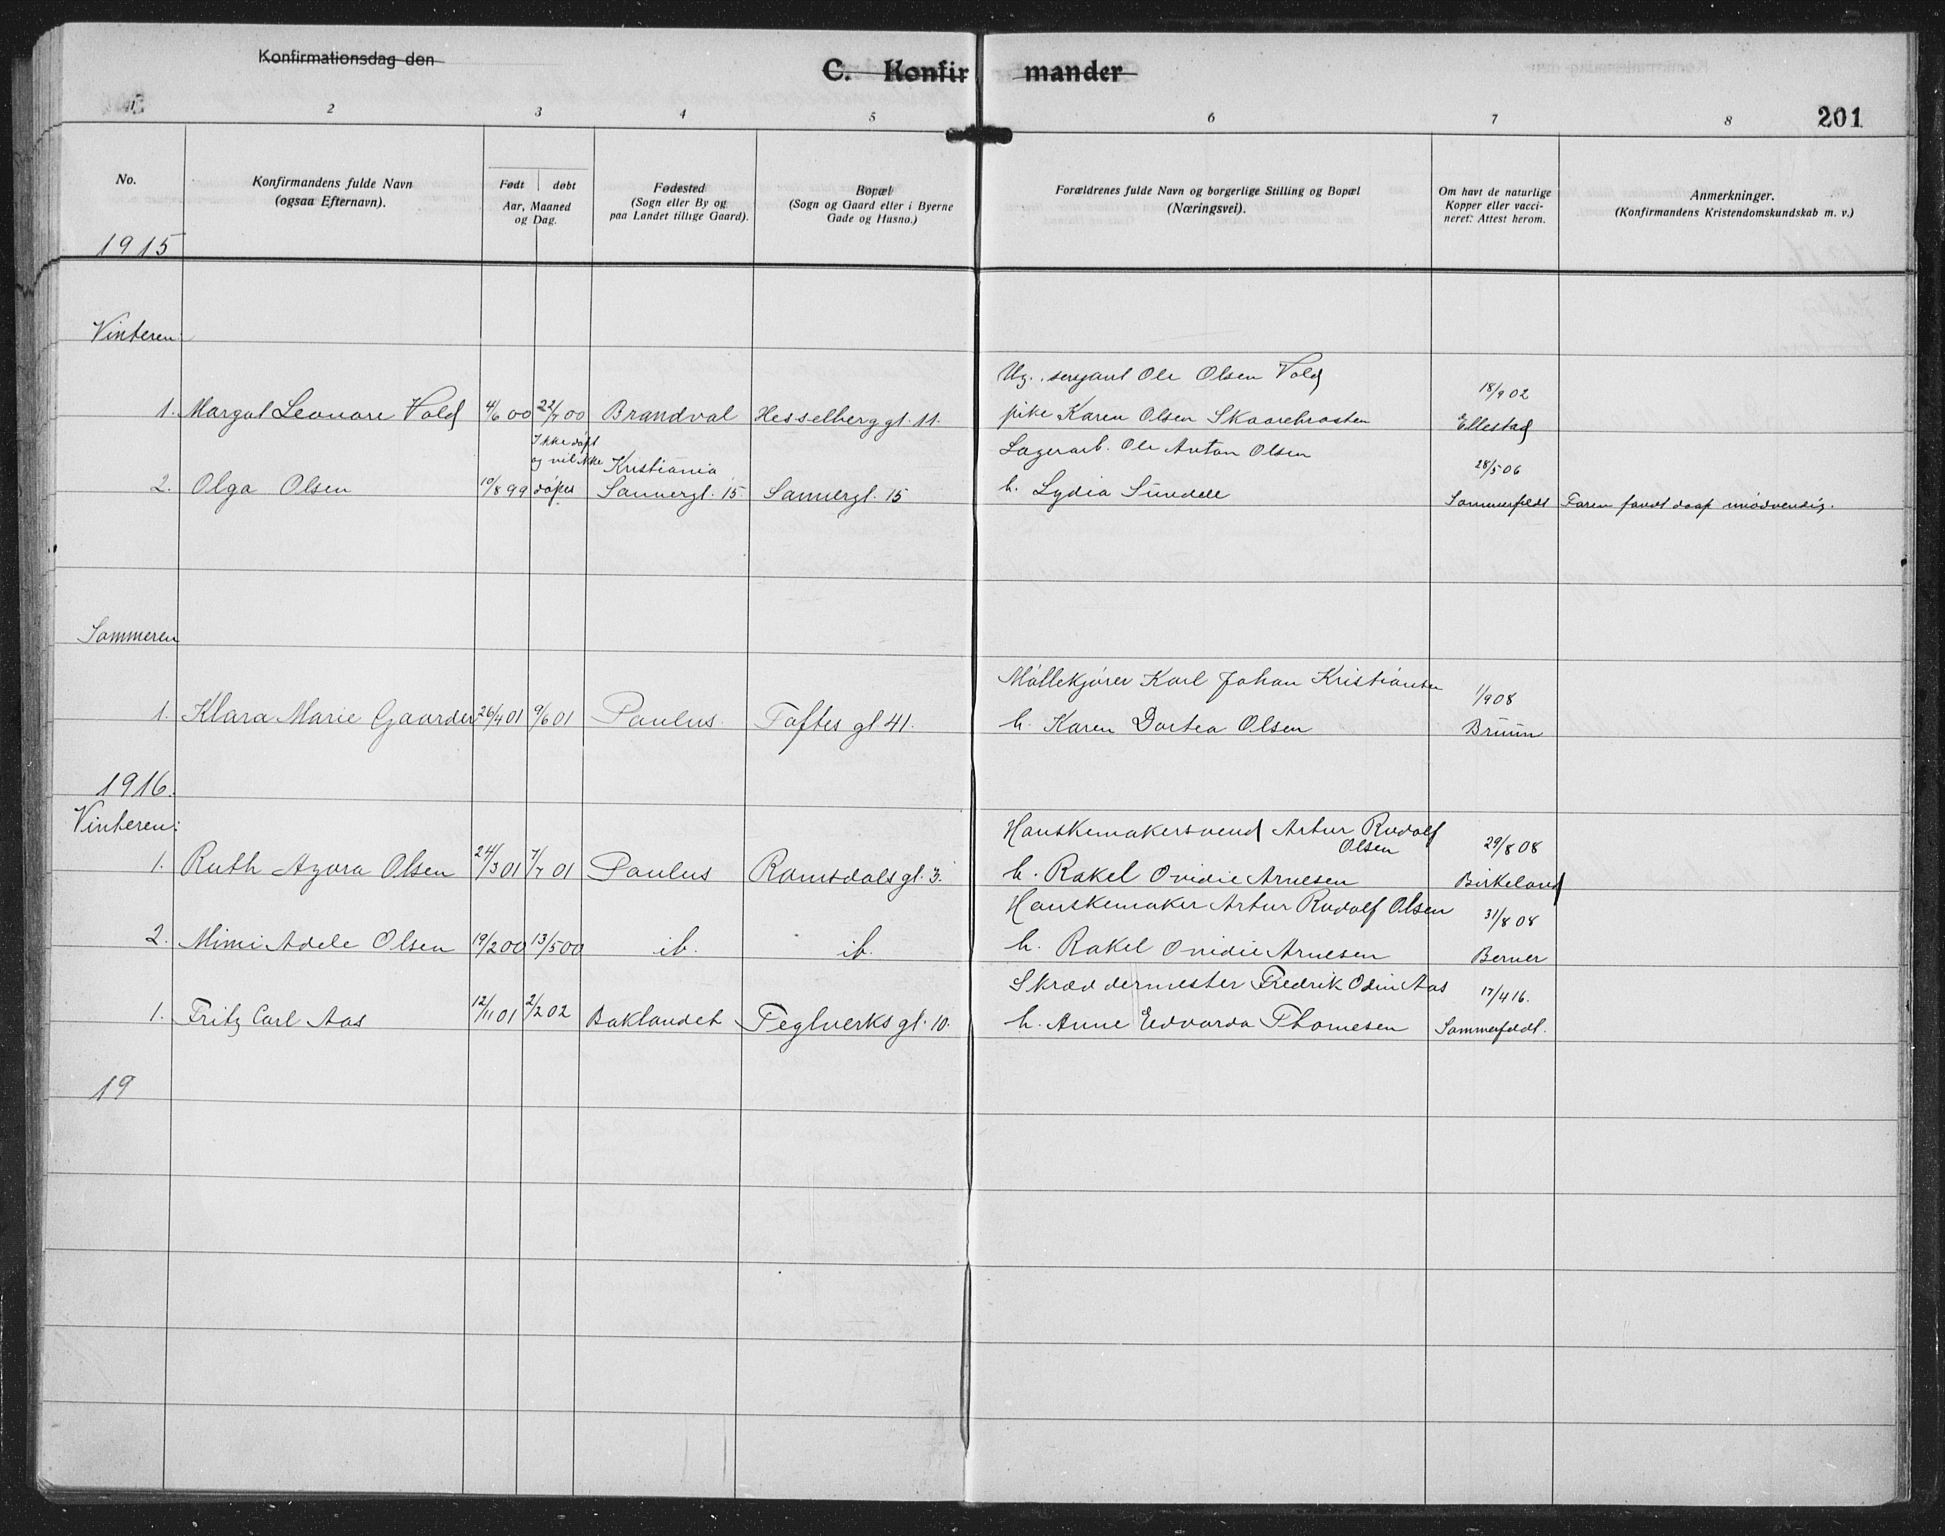 Konfirmationsdag den
C. Konfirmander
201
1 2 3 4 5 6 7 8
No.
Konfirmandens fulde Navn
(ogsaa Efternavn).
Født døbt
Aar, Maaned
og Dag.
Fødested
(Sogn eller By og
paa Landet tillige Gaard).
Bopæl
(Sogn og Gaard eller i Byerne
Gade og Husno.)
Forældrenes fulde Navn og borgerlige Stilling og Bopæl
(Næringsvei).
Om havt de naturlige
Kopper eller vacci-
neret: Attest herom.
Anmerkninger.
(Konfirmandens Kristendomskundskab m. v.)
1915
Vinteren:
Ug. sersjant Ole Olsen Vold 18/9 02
1. Margot Leonore Vold 4/6 00 22/7 00 Brandval Hesselberg gt. 11. pike Karen Olsen Skaarebraaten Ellestad
Ikke døpt
og vil ikke Kristiania Lagerarb. Ole Anton Olsen 28/5 06
2. Olga Olsen 10/8 99 døpes Sannergt. 15 Sannergt. 15 h. Lydia Sundell Sommerfeldt Faren fandt daap unødvendig.
Sommeren
Møllekjører Karl Johan Kristiansen 1/9 08
1. Klara Marie Gaarder 26/4 01 9/6 01 Paulus. Toftes gt. 41. h. Karen Dortea Olsen Bruun
1916.
Vinteren:
Hanskemakersvend Artur Rudolf
Olsen 29/8 08
1. Ruth Azora Olsen 24/3 01 7/7 01 Paulus Romsdals gt. 3. h. Rakel Ovidie Arnesen Birkeland
Hanskemaker Artur Rudolf Olsen 31/8 08
2. Mimi Adele Olsen 19/2 00 13/5 00 ib. ib. h. Rakel Ovidie Arnesen Berner
Skræddermester Fredrik Odin Aas 17/4 16.
1. Fritz Carl Aas 12/11 01 2/2 02 Baklandet Teglverks gt. 10. h. Anne Edvarda Thomesen Sommerfeldt.
19